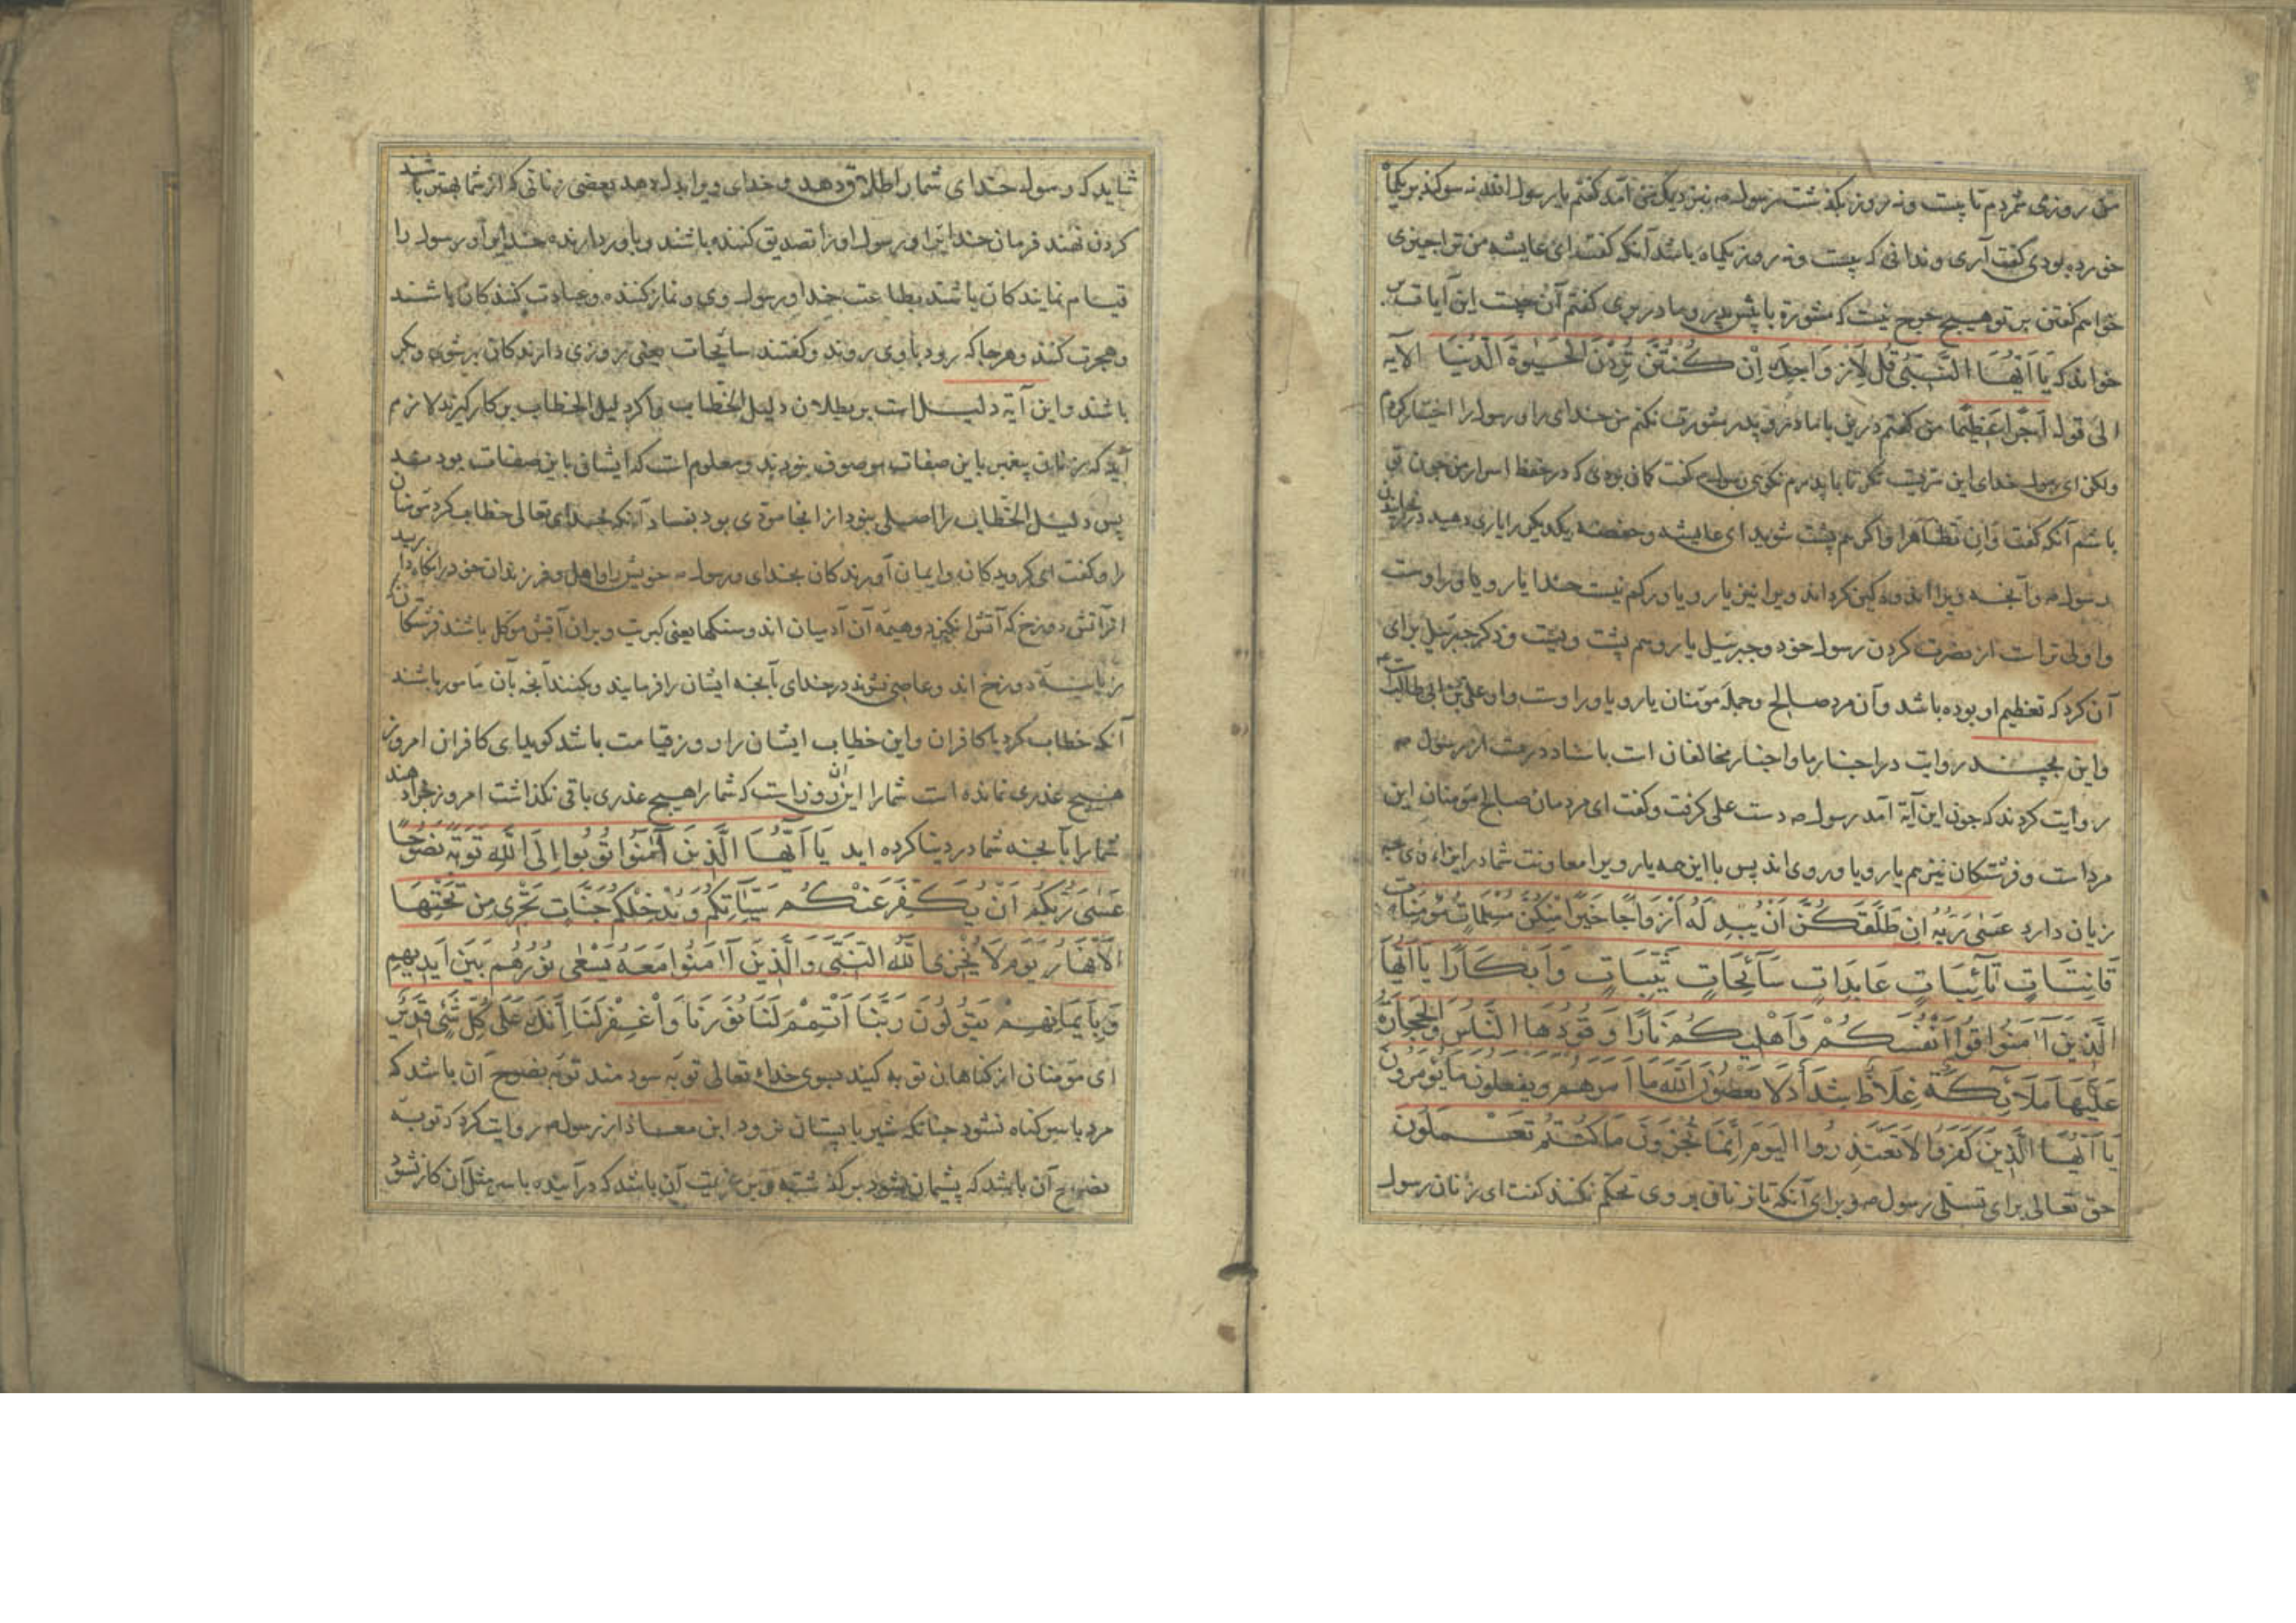 من روزی شمردم تا بیست ونه روز بگذشت رسول ص بنزدیک من آمد گفتم یا رسول الله نه سوگند بر یکماه
خورده بودی گفت آری وندانی که بیست ونه روز یکماه باشد آنگه گفت ای عایشه من ترا چیزی
خواهم گفتن بر تو هیچ حرج نیست که مشورة با پیش پدر ومادر بری گفتم آن چیست این آیات
خواند که یَا اَیُّهَا النَّبِیُّ قُل لِاَزْوَاجِكَ اِنْ کُنْتُنَّ تُرِدْنَ الْحَیٰوةَ الدُّنْیَا الآیه
الی قوله اَجْرًا عَظِیْمًا من گفتم درین با مادر و پدر مشورت نکنم من خدای را ورسول را اختیار کردم
ولکن ای رسول خدای این با پدرم نگوی رسول ص گفت کان بودی که در حفظ اسرار من چون تو
باشم آنگه گفت وَاِنْ تَظَاهَرَا واگر هم پشت شوید ای عایشه وحفصه ویکدیگر را یاری دهید در رنجانیدن
رسول ص وآنچه ویرا اندوهگین کرداند ویرا نیز یار ویاور کم نیست خدا یار ویاور اوست
واولی تر است از نصرت کردن رسول خود وجبرئیل یار وهم پشت ویست وذکر جبرئیل برای
آن کرد که تعظیم او بوده باشد وآن مرد صالح وجمله مؤمنان یار ویاور اوست واو علی بن ابی طالبست
واین بچند روایت در اخبار ما واخبار مخالفان است باسناد درست از رسول ص
روایت کردند که چون این آیة آمد رسول ص دست علی گرفت وگفت ای مردمان صالح مؤمنان این
مرد است وفرشتکان نیز هم یار ویاور وی اند پس با این همه یار ویرا معاونت شما در ایذاء وی چه
زیان دارد عَسٰی رَبُّهُ اِنْ طَلَّقَکُنَّ اَنْ یُبْدِلَهُ اَزْوَاجًا خَیْرًا مِنْکُنَّ مُسْلِمَاتٍ مُؤْمِنَاتٍ
قَانِتَاتٍ تَآئِبَاتٍ عَابِدَاتٍ سَآئِحَاتٍ ثَیِّبَاتٍ وَاَبْکَارًا یَا اَیُّهَا
الَّذِیْنَ آمَنُوا قُوا اَنْفُسَکُمْ وَاَهْلِیکُمْ نَارًا وَقُودُهَا النَّاسُ وَالْحِجَارَةُ
عَلَیْهَا مَلَآئِکَةٌ غِلَاظٌ شِدَادٌ لَا یَعْصُونَ اللّٰهَ مَا اَمَرَهُمْ وَیَفْعَلُونَ مَا یُؤْمَرُونَ
یَا اَیُّهَا الَّذِیْنَ کَفَرُوا لَا تَعْتَذِرُوا الْیَوْمَ اِنَّمَا تُجْزَوْنَ مَا کُنْتُمْ تَعْمَلُونَ
حق تعالی برای تسلی رسول ص وبرای آنکه تا زنان بر وی تحکم نکنند گفت ای زنان رسول
شاید که رسول خدای شما را طلاق دهد وخدای ویرا بدل دهد بعضی زنانی که از شما بهتر باشند
کردن نهند فرمان خدایرا ورسول او را تصدیق کننده باشند وباور دارنده خدایرا ورسول را
قیام نمایندکان باشند بطاعت خدا ورسول وی ونماز کننده وعبادت کنندکان باشند
وهجرت کنند وهرجا که رود با وی روند وگفتند سائحات یعنی روزی دارندکان بر شوی وبکر
باشند واین آیة دلیل است بر بطلان دلیل الخطاب واگر دلیل الخطاب بر کار گیرند لازم
آید که زنان پیغمبر باین صفات موصوف نبودند ومعلوم است که ایشان باین صفات بودند
پس دلیل الخطاب را اصلی نبود از انجا مؤدی بود بفساد آنگه خدای تعالی خطاب کرد مؤمنان
را وگفت ای گرویدکان وایمان آورندکان بخدای ورسول ص خویش را واهل وفرزندان خود را نگاه دارید
از آتش دوزخ که آتش انگیز وهیمه آن آدمیان اند وسنگها یعنی کبریت وبر آن آتش موکل باشند فرشتکان
زبانیة دوزخ اند وعاصی نشوند در خدای بآنچه ایشان را فرمایند وبکنند آنچه بآن مأمور باشند
آنگه خطاب کرد با کافران واین خطاب ایشان را روز قیامت باشد گوید ای کافران امروز
هیچ عذری نمانده است شما را این آن روز است که شما را هیچ عذری باقی نگذاشت امروز جزا دهند
شما را بآنچه شما در دنیا کرده اید یَا اَیُّهَا الَّذِیْنَ آمَنُوا تُوبُوا اِلَی اللّٰهِ تَوْبَةً نَصُوحًا
عَسٰی رَبُّکُمْ اَنْ یُکَفِّرَ عَنْکُمْ سَیِّئَاتِکُمْ وَیُدْخِلَکُمْ جَنَّاتٍ تَجْرِی مِنْ تَحْتِهَا
الْاَنْهَارُ یَوْمَ لَا یُخْزِی اللّٰهُ النَّبِیَّ وَالَّذِیْنَ آمَنُوا مَعَهُ یَسْعٰی نُوْرُهُمْ بَیْنَ اَیْدِیهِمْ
وَبِاَیْمَانِهِمْ یَقُولُونَ رَبَّنَا اَتْمِمْ لَنَا نُوْرَنَا وَاغْفِرْ لَنَا اِنَّكَ عَلٰی کُلِّ شَیْءٍ قَدِیْرٌ
ای مؤمنان از گناهان توبه کنید بسوی خدای تعالی توبه سودمند توبه نصوح آن باشد که
مرد باسر گناه نشود چنانکه شیر با پستان نرود ابن معاذ از رسول ص روایت کرد که توبه
نصوح آن باشد که پشیمان شود بر گذشته وبر عزیمت آن باشد که در آینده باسر مثل آن کار نشود